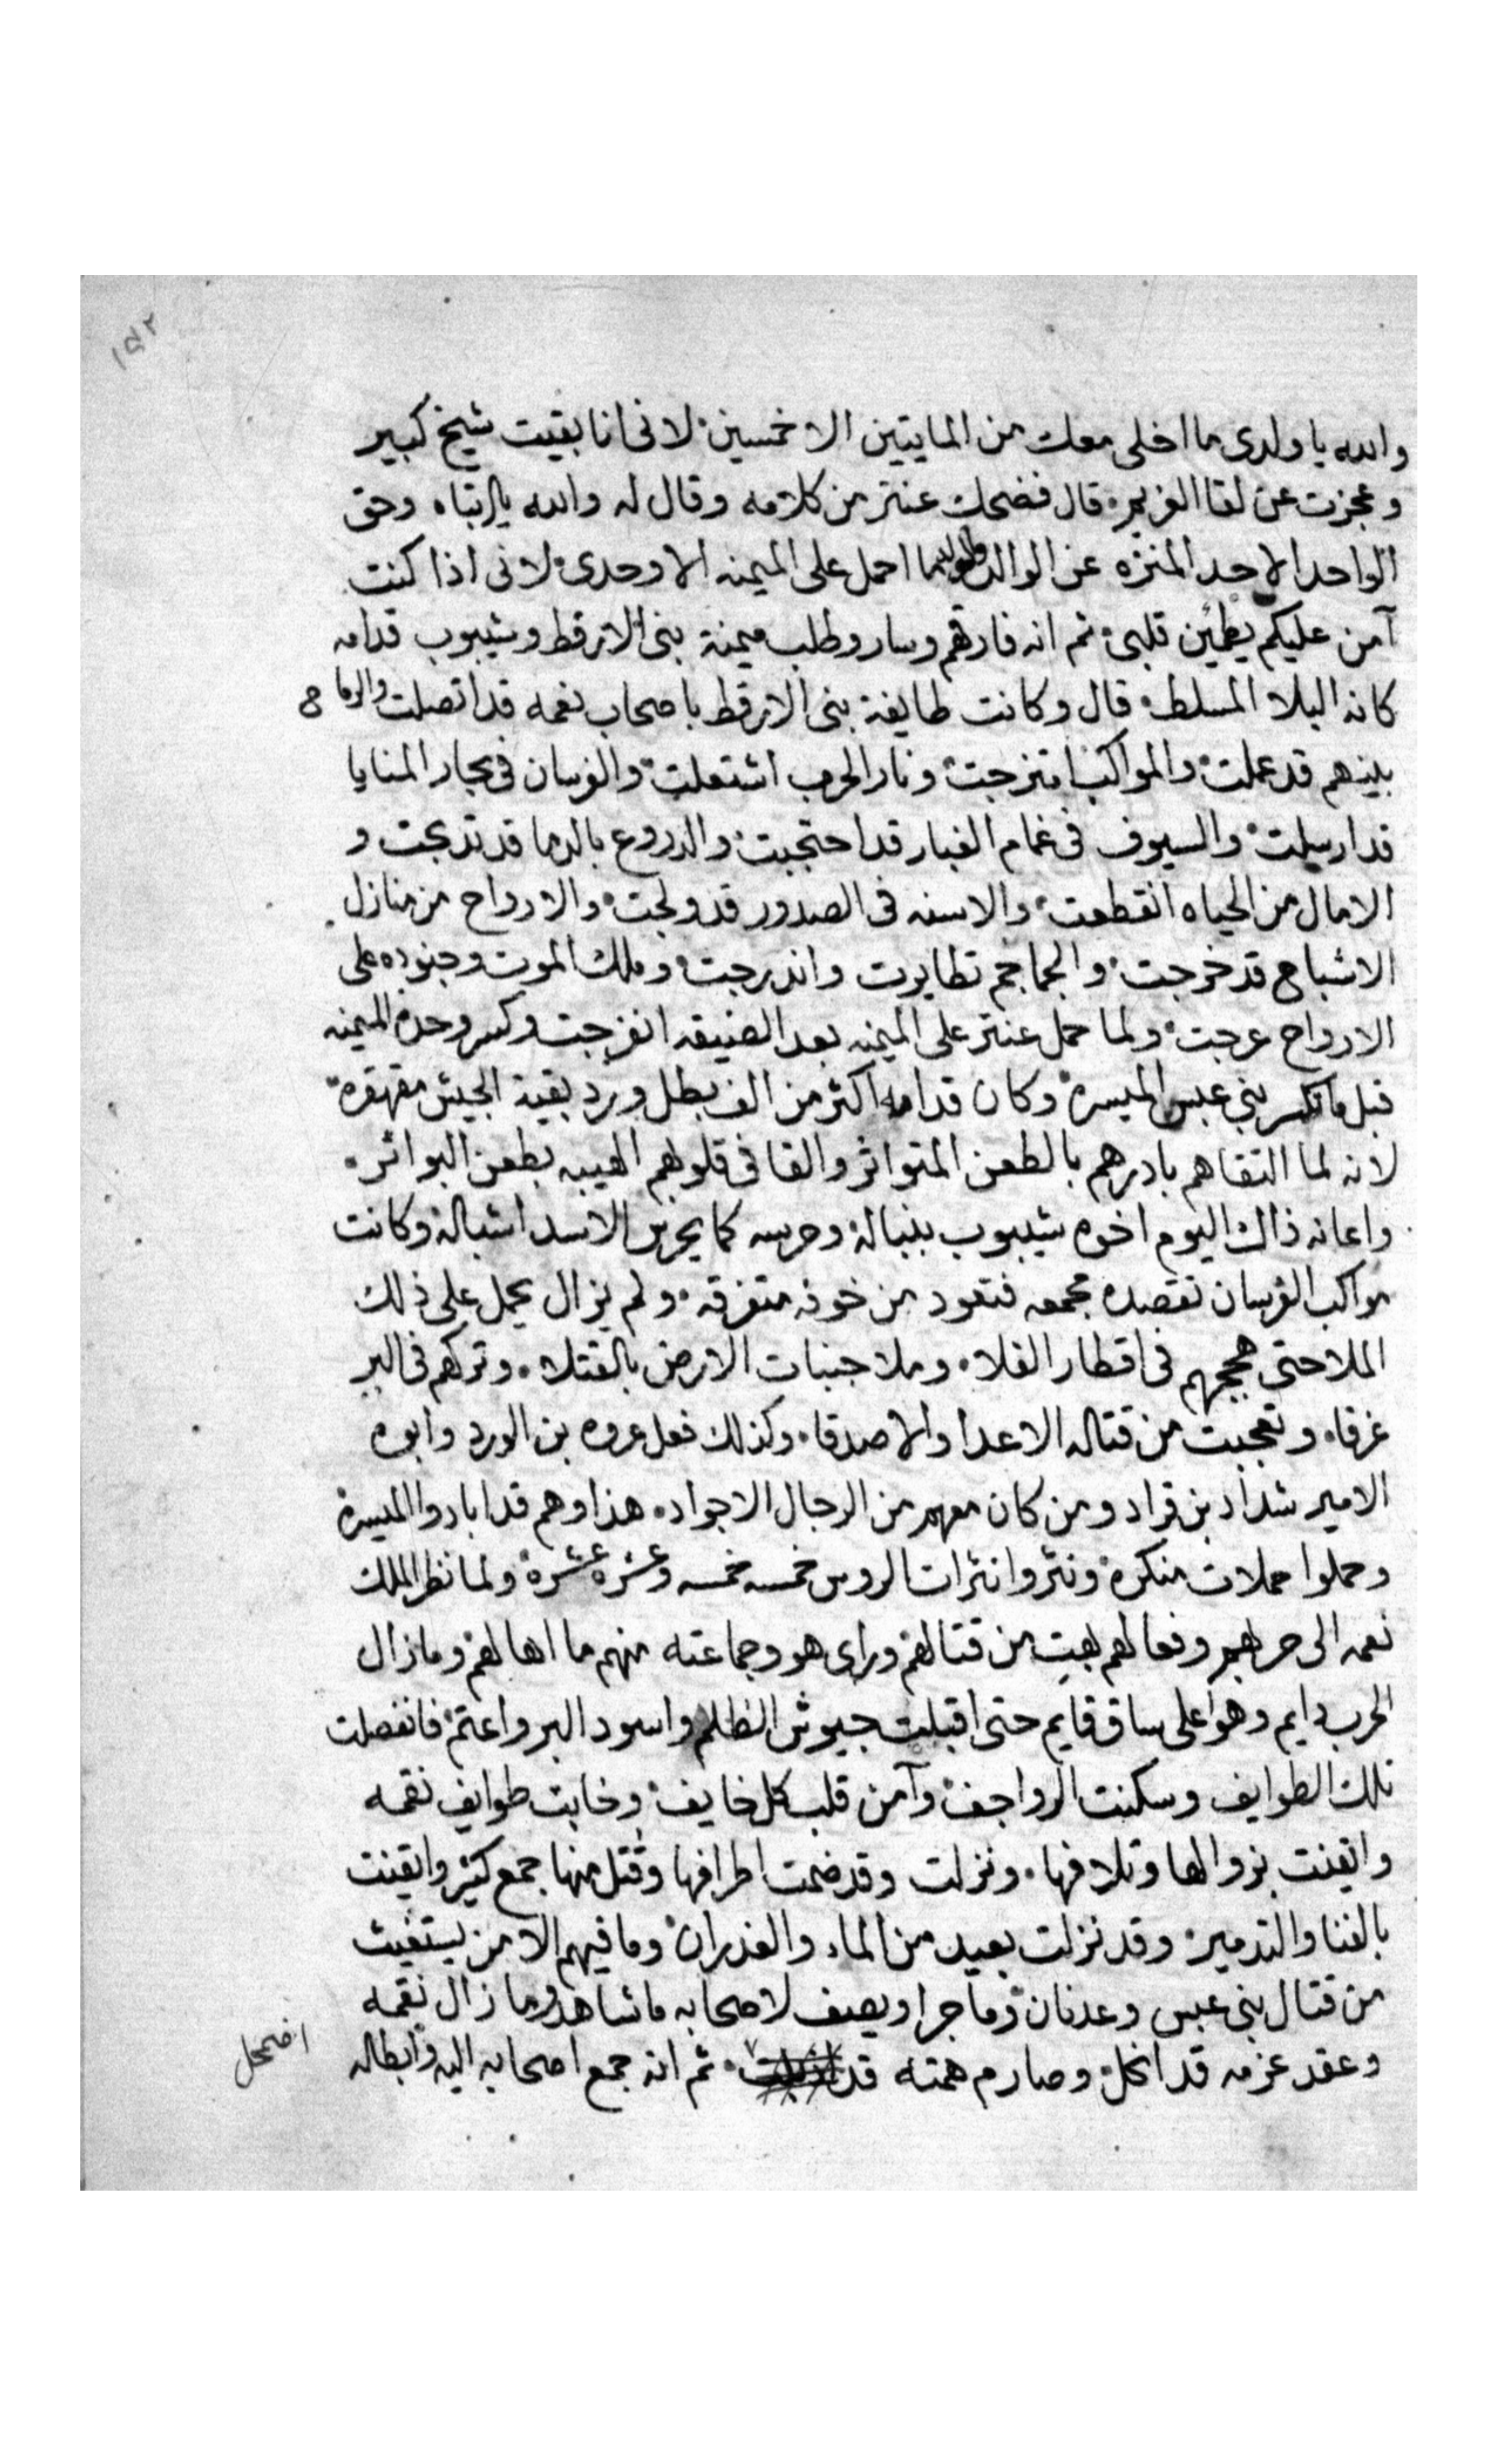 ١٥٢
والله يا ولدى ما اخلى معك من المايتين الا خمسين لانى انا بقيت شيخ كبير
وعجزت عن لقا الغريم قال فضحك عنتر من كلامه وقال له والله يا ابتاه وحق
الواحد الاحد المنزه عن الوالد والولد ما احمل على الميمنه الا وحدى لانى اذا كنت
آمن عليكم يطمين قلبى ثم انه فارقهم وسار وطلب ميمنة بنى الارقط وشيبوب قدامه
كانه البلا المسلط قال وكانت طايفة بنى الارقط باصحاب نغمه قد اتصلت والرماح
بينهم قد عملت والمواكب امتزجت ونار الحرب اشتعلت والفرسان فى بحار المنايا
قد ارسلت والسيوف فى غمام الغبار قد احتجبت والدروع بالدما قد تدبجت و
الامال من الحياه انقطعت والاسنه فى الصدور قد ولجت والارواح من منازل
الاشباح قد خرجت والجماجم تطايرت واندرجت وملك الموت وجنوده على
الارواح عرجت ولما حمل عنتر على الميمنه بعد الضيقه انفرجت وكسر وحده الميمنه
قبل ما تكسر بنى عبس الميسرة وكان قدامه اكثر من الف بطل ورد بقية الجيش مقهقره
لانه لما التقاهم بادرهم بالطعن المتواتر والقا فى قلوبهم الهيبه بطعن البواتر
واعانه ذاك اليوم اخوه شيبوب بنباله وحرسه كما يحرس الاسد اشباله وكانت
مواكب الفرسان تقصده مجمعه فتعود من خوفه متفرقه ولم يزال يحمل على ذلك
الملا حتى هججهم فى اقطار الفلا وملا جنبات الارض بالقتلا وتركهم فى البر
غرقا وتعجبت من قتاله الاعدا والاصدقا وكذلك فعل عروه بن الورد وابوه
الامير شداد بن قراد ومن كان معهم من الرجال الاجواد هذا وهم قد ابادوا الميسرة
وحملوا حملات منكره ونثروا نثرات الروس خمسه خمسه وعشره عشره ولما نظر الملك
نغمه الى حربهم وفعالهم بهت من قتالهم وراى هو وجماعته منهم ما اهالهم وما زال
الحرب دايم وهو على ساق قايم حتى اقبلت جيوش الظلام واسود البر واعتم فانفصلت
تلك الطوايف وسكنت الرواجف وآمن قلب كل خايف وخابت طوايف نقمه
وايقنت بزوالها وتلافها ونزلت وقد ضمت اطرافها وقتل منها جمع كثير وايقنت
بالفنا والتدمير وقد نزلت بعيد من الماء والغدران وما فيهم الا من يستغيث
من قتال بنى عبس وعدنان وما جرا ويصف لاصحابه ما شاهد وما زال نقمه
وعقد عزمه قد انحل وصارم همته قد ثم انه جمع اصحابه اليه وابطاله
اضمحل